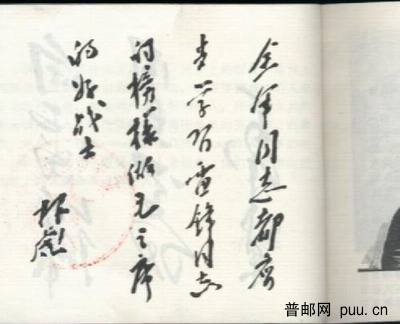 全军同志都应
当学习雷锋同志
的榜樣做毛主席
的好战士
林彪
普邮网 puu.cn